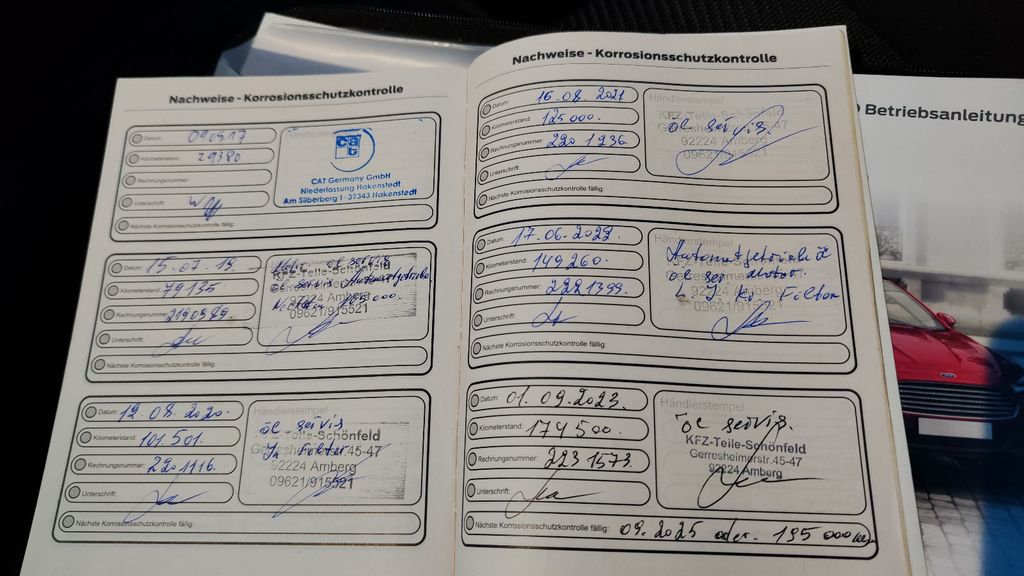 Nachweise - Korrosionsschutzkontrolle
Datum: 090517
Kilometerstand: 29380
Rechnungsnummer:
Unterschrift:
Nächste Korrosionsschutzkontrolle fällig:
cat
CAT Germany GmbH
Niederlassung Hakenstedt
Am Silberberg 1 · 39343 Hakenstedt
Datum: 15.07.19.
Kilometerstand: 79135
Rechnungsnummer: 2190989
Unterschrift:
Nächste Korrosionsschutzkontrolle fällig:
KFZ-Teile-Schönfeld
92224 Amberg
09621/915521
Datum: 12.08.2020.
Kilometerstand: 101 501.
Rechnungsnummer: 2201116.
Unterschrift:
Nächste Korrosionsschutzkontrolle fällig:
Händlerstempel
öl servis
Filter
KFZ-Teile-Schönfeld
Gerresheimerstr.45-47
92224 Amberg
09621/915521
Nachweise - Korrosionsschutzkontrolle
Datum: 16.08.2021
Kilometerstand: 125 000.
Rechnungsnummer: 2201236
Unterschrift:
Nächste Korrosionsschutzkontrolle fällig:
Händlerstempel
öl servis.
KFZ-Teile-Schönfeld
92224 Amberg
Datum: 17.06.2022.
Kilometerstand: 149260.
Rechnungsnummer: 2221399.
Unterschrift:
Nächste Korrosionsschutzkontrolle fällig:
Händlerstempel
Motor
Filter
92224 Amberg
09621/915521
Datum: 01.09.2023.
Kilometerstand: 174500.
Rechnungsnummer: 2231573.
Unterschrift:
Nächste Korrosionsschutzkontrolle fällig: 09.2025 oder 195 000 km
Händlerstempel
öl servis.
KFZ-Teile-Schönfeld
Gerresheimerstr.45-47
92224 Amberg
Betriebsanleitung